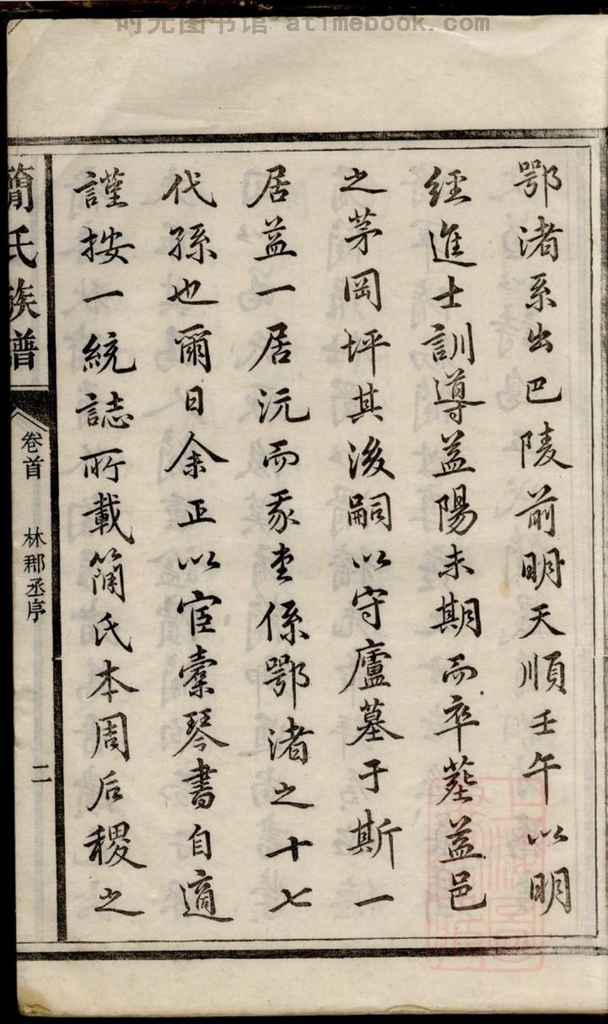 时光图书馆-atimebook.com
鄂渚系出巴陵前明天順壬午以明
經進士訓導益陽未期而卒葬益邑
之茅岡坪其後嗣以守廬墓于斯一
居益一居沅而彖圭係鄂渚之十七
代孫也爾日余正以宦橐琴書自適
謹按一統誌所載簡氏本周后稷之
簡氏族譜
卷首
林郡丞序
二